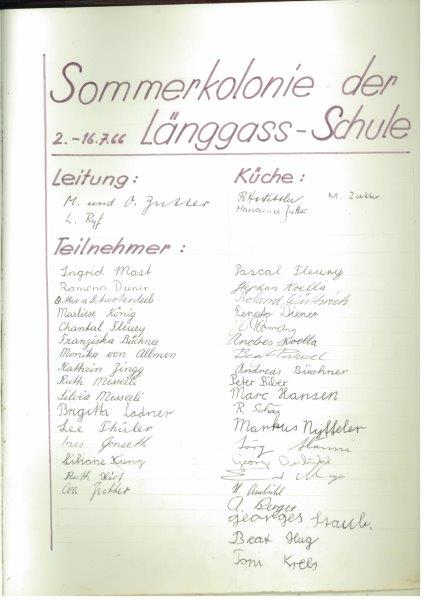 Sommerkolonie der
2.-16.7.66 Länggass-Schule
Leitung:
M. und O. Zutter
L. Ryf
Küche:
M. Zutter
Marianne Zutter
Teilnehmer:
Ingrid Mast
Ramona Diener
Marliese König
Chantal Fleury
Franziska Büchner
Monika von Allmen
Kathrin Zingg
Ruth Misveli
Silvia Misseli
Brigitta Ladner
Lee Thüler
Ines Jenseth
Liliane Küng
Ruth Hirt
Eva Zutter
Pascal Fleury
Stephan Koella
Roland
Renato Diener
Andres Koella
Beat
Andreas Büchner
Peter Biber
Marc Hansen
R. Schär
Markus Nyffeler
Jörg Stämmi
Georg Ambühl
H. Ambühl
A. Berger
Georges Straub.
Beat Hug
Toni Krebs